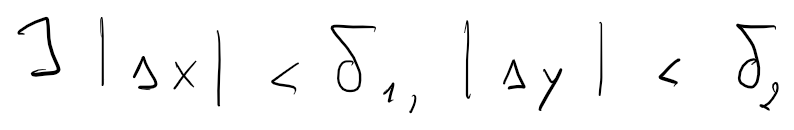 ∃ |Δx| < δ₁, |Δy| < δ₂